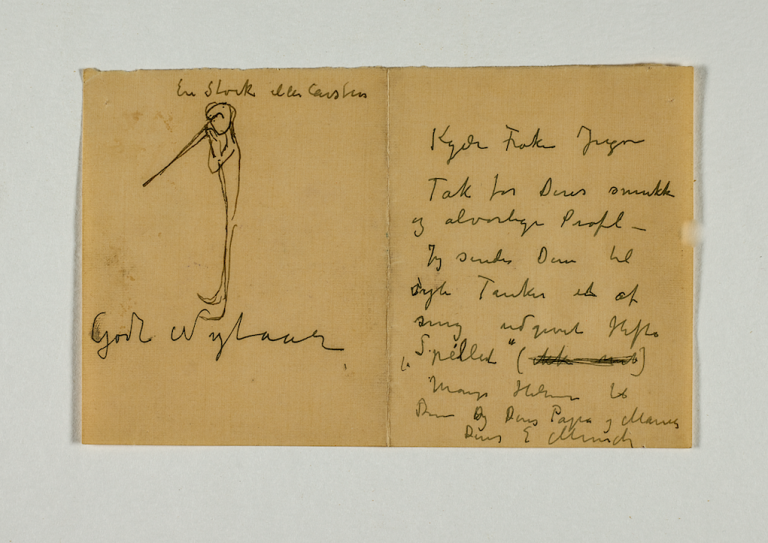 En Stork eller Carsten
Godt Nytaar
Kjære Frøken Inger
Tak for Deres smukke
og alvorlige Profil –
Jeg sender Dem til
Tanker et af
mig udgivet Hefte
„Spillet" (
Mange Hilsener til
Dem og Deres Papa og Mama
Deres E Munch.